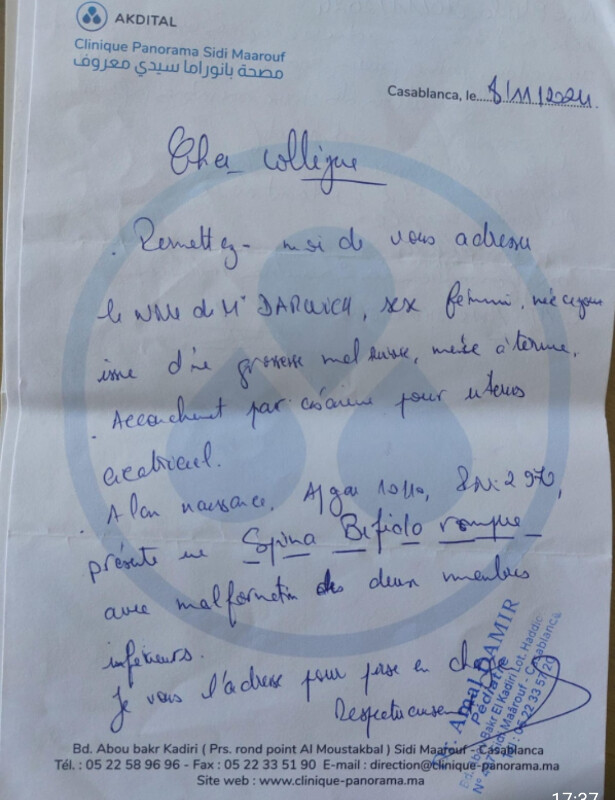 AKDITAL
Clinique Panorama Sidi Maarouf
مصحة بانوراما سيدي معروف
Casablanca, le... 8/11/2024
Cher collègue
. Permettez-moi de vous adresser
le NNé de Mme DARWICH, sexe féminin, née ce jour
issue d'une grossesse mal suivie, menée à terme.
. Accouchement par césarienne pour utérus
cicatriciel.
. A la naissance, Apgar 10/10,
présente une Spina Bifida rompue
avec malformation des deux membres
inférieurs.
Je vous l'adresse pour prise en charge
Respectueusement
Dr. Amal DAMIR
Pédiatre
Bd. Abou Bakr El Kadiri Lot. Haddio
N° 47 Sidi Maârouf - Casablanca
05 22 33 57 20
Bd. Abou bakr Kadiri ( Prs. rond point Al Moustakbal ) Sidi Maarouf - Casablanca
Tél. : 05 22 58 96 96 - Fax : 05 22 33 51 90 E-mail : direction@clinique-panorama.ma
Site web : www.clinique-panorama.ma
17:37